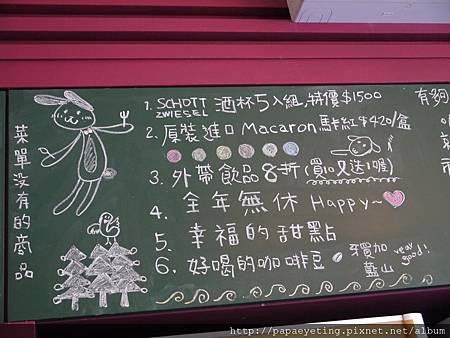 菜單没有的商品
1. SCHOTT ZWIESEL 酒杯5入組,特價$1500
2. 原裝進口 Macaron 馬卡紅 $420/盒
3. 外帶飲品8折(買10又送1喔)
4. 全年無休 Happy~
5. 幸福的甜點
6. 好喝的咖啡豆。牙買加藍山 very good!
有夠
http://papaeyeting.pixnet.net/album